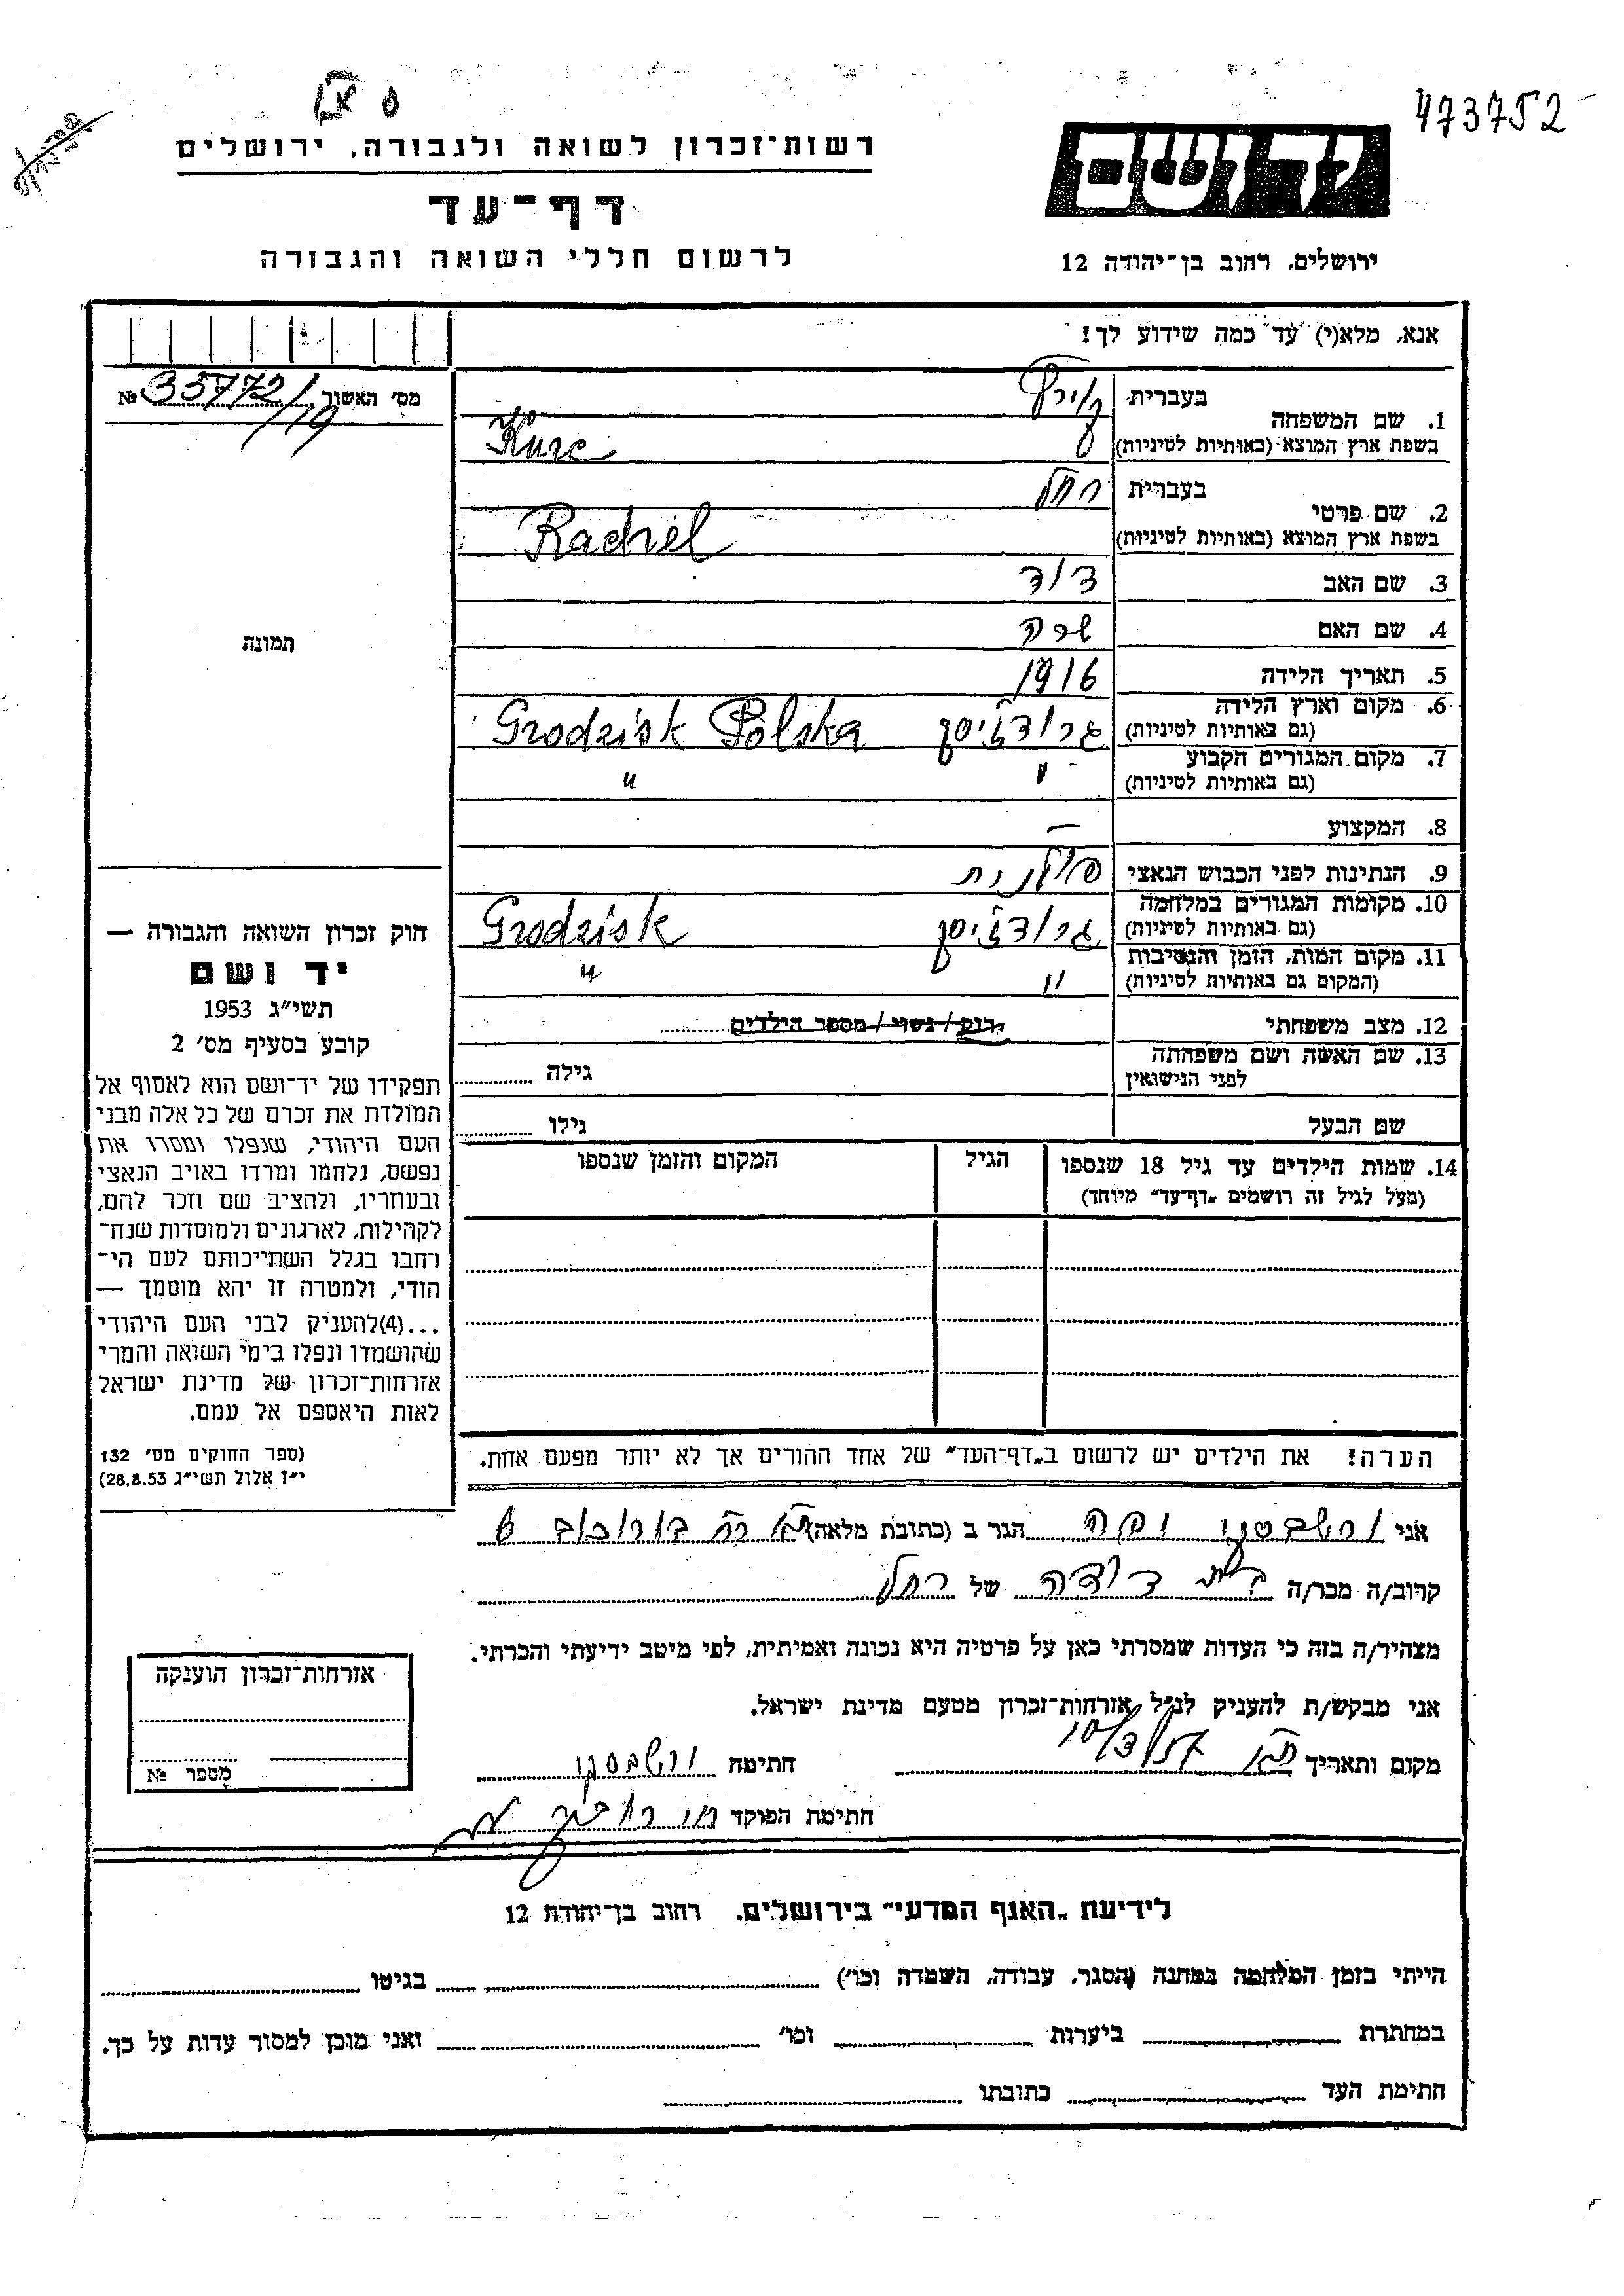 473752
רשות־זכרון לשואה ולגבורה, ירושלים
דף־עד
לרשום חללי השואה והגבורה
יד ושם
ירושלים, רחוב בן־יהודה 12
אנא, מלא(י) עד כמה שידוע לך!
מס' האשור 35772/19 №
1. שם המשפחה
בעברית קורץ
בשפת ארץ המוצא (באותיות לטיניות) Kurc
2. שם פרטי
בעברית רחל
בשפת ארץ המוצא (באותיות לטיניות) Rachel
3. שם האב דוד
4. שם האם שרה
5. תאריך הלידה 1916
6. מקום וארץ הלידה (גם באותיות לטיניות) גרודזיסק Grodzisk Polska
7. מקום המגורים הקבוע (גם באותיות לטיניות) " "
8. המקצוע —
9. הנתינות לפני הכבוש הנאצי פולנית
10. מקומות המגורים במלחמה (גם באותיות לטיניות) גרודזיסק Grodzisk
11. מקום המות, הזמן והנסיבות (המקום גם באותיות לטיניות) " "
12. מצב משפחתי רוק / נשוי / מספר הילדים
13. שם האשה ושם משפחתה לפני הנישואין גילה
שם הבעל גילו
14. שמות הילדים עד גיל 18 שנספו
(מעל לגיל זה רושמים "דף־עד" מיוחד)
הגיל
המקום והזמן שנספו
תמונה
חוק זכרון השואה והגבורה —
יד ושם
תשי"ג 1953
קובע בסעיף מס' 2
תפקידו של יד־ושם הוא לאסוף אל
המולדת את זכרם של כל אלה מבני
העם היהודי, שנפלו ומסרו את
נפשם, נלחמו ומרדו באויב הנאצי
ובעוזריו, ולהציב שם וזכר להם,
לקהילות, לארגונים ולמוסדות שנח־
רחבו בגלל השתייכותם לעם הי־
הודי, ולמטרה זו יהא מוסמך —
...(4)להעניק לבני העם היהודי
שהושמדו ונפלו בימי השואה והמרי
אזרחות־זכרון של מדינת ישראל
לאות היאספם אל עמם.
(ספר החוקים מס' 132
י"ז אלול תשי"ג 28.8.53)
הערה! את הילדים יש לרשום ב"דף־העד" של אחד ההורים אך לא יותר מפעם אחת.
אני ורשבסקי הגר ב (כתובת מלאה) ת"א רח בורוכוב
קרוב/ה מכר/ה בת דודה של רחל
מצהיר/ה בזה כי העדות שמסרתי כאן על פרטיה היא נכונה ואמיתית, לפי מיטב ידיעתי והכרתי.
אני מבקש/ת להעניק לנ"ל אזרחות־זכרון מטעם מדינת ישראל.
מקום ותאריך ת"א חתימה ורשבסקי
חתימת הפוקד
אזרחות־זכרון הוענקה
מספר №
לידיעת "האגף המדעי" בירושלים, רחוב בן־יהודה 12
הייתי בזמן המלחמה במחנה (הסגר, עבודה, השמדה וכו') בגיטו
במחתרת ביערות וכו' ואני מוכן למסור עדות על כך.
חתימת העד כתובתו